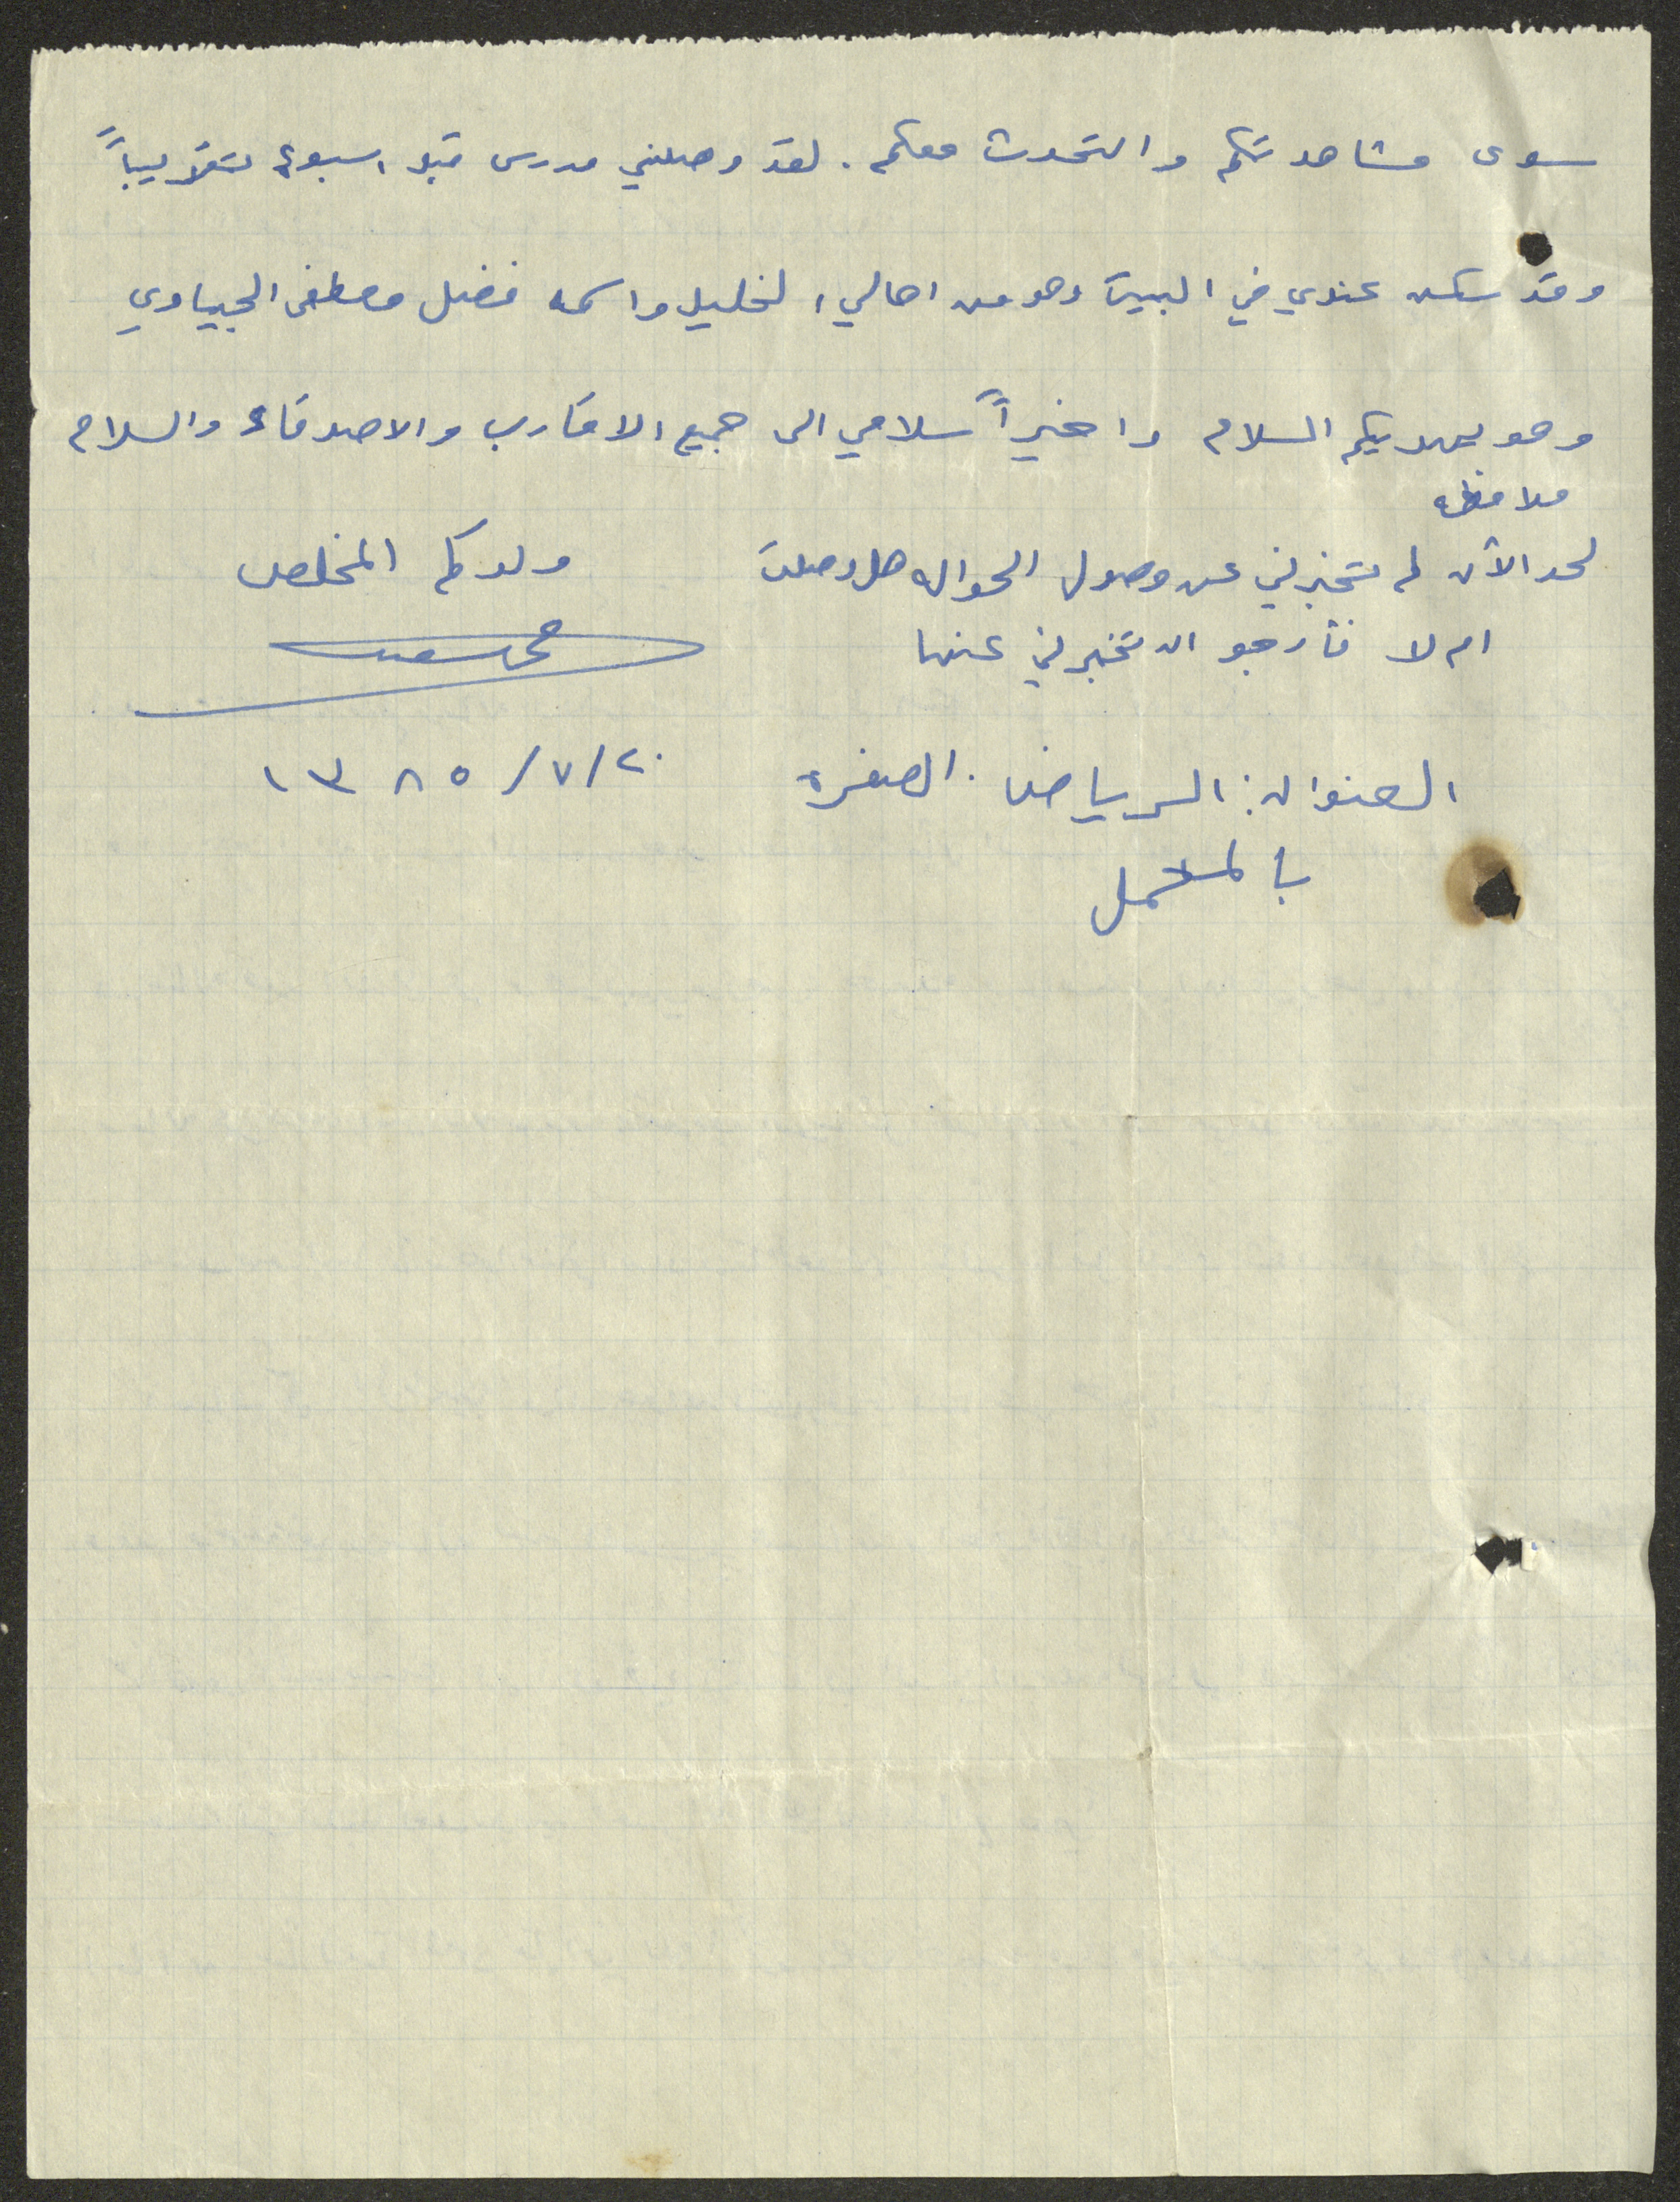 سوى مشاهدتكم والتحدث معكم . لقد وصلني مدرس قبل اسبوع تقريباً
وقد سكن عندي في البيت وهو من اهالي الخليل واسمه فضل مصطفى الجبياوي
وهو يهديكم السلام واخيراً سلامي الى جميع الاقارب والاصدقاء والسلام
ملاحظه
لحد الآن لم تخبرني عن وصول الحواله هل وصلت
ام لا فأرجو ان تخبرني عنها
ولدكم المخلص
محمد سعيد
٢٠/٧/١٣٨٥
العنوان : الرياض . الصفره
بالمحمل